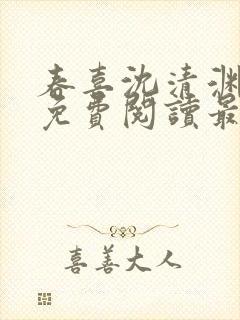 春喜沈清渊
免費閱讀最
喜善大人